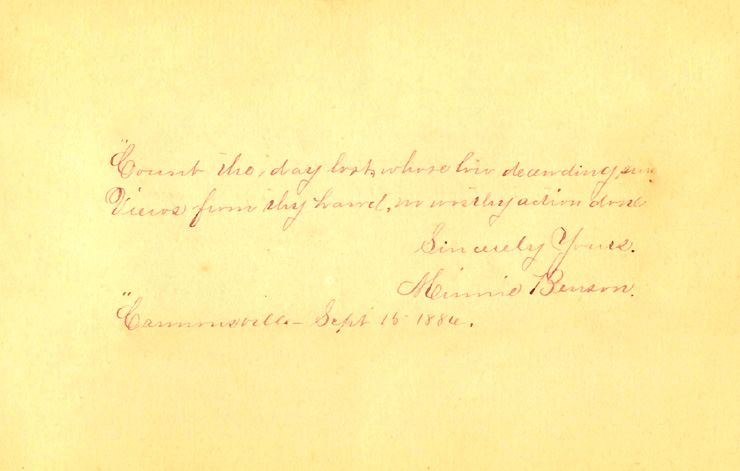 "Count the day lost, whose low decending sun
Views from thy hand, no worthy action done
Sincerely Yours.
Minnie Benson.
"Cannonsville – Sept 15 1884.